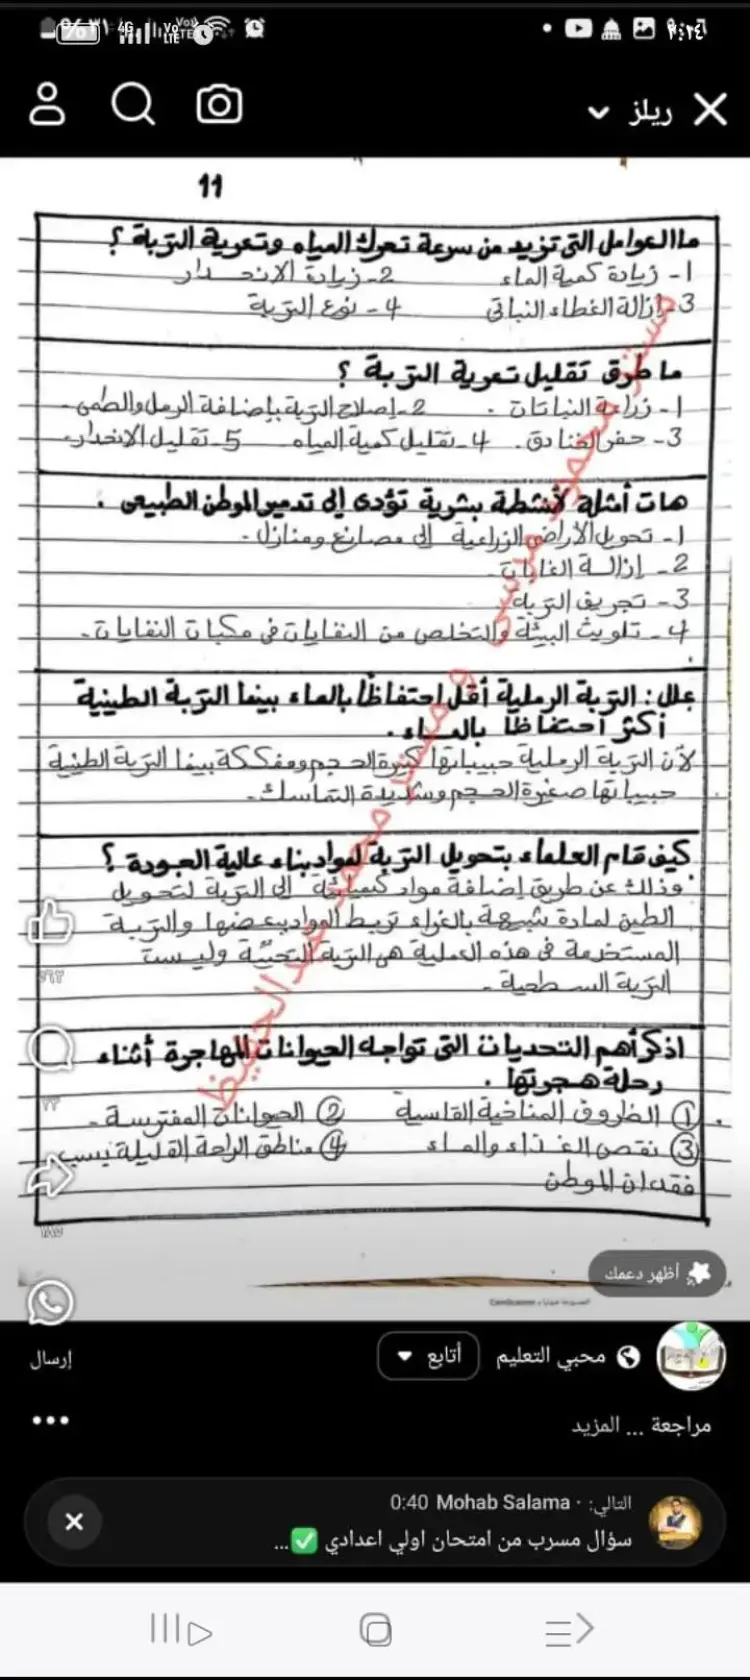 ريلز
11
ما العوامل التى تزيد من سرعة تحرك المياه وتعرية التربة ؟
1- زيادة كمية الماء 2- زيادة الانحدار
3- إزالة الغطاء النباتى 4- نوع التربة
ما طرق تقليل تعرية التربة ؟
1- زراعة النباتات . 2- إصلاح التربة بإضافة الرمل والطمى.
3- حفر الخنادق. 4- تقليل كمية المياه 5- تقليل الانحدار.
هات أمثلة لأنشطة بشرية تؤدى إلى تدمير الموطن الطبيعى .
1- تحويل الأراضى الزراعية إلى مصانع ومنازل.
2- إزالة الغابات.
3- تجريف التربة
4- تلويث البيئة والتخلص من النفايات فى مكبات النفايات.
علل: التربة الرملية أقل احتفاظًا بالماء بينما التربة الطينية
أكثر احتفاظًا بالماء.
لأن التربة الرملية حبيباتها كبيرة الحجم ومفككة بينما التربة الطينية
حبيباتها صغيرة الحجم وشديدة التماسك.
كيف قام العلماء بتحويل التربة لمواد بناء عالية الجودة ؟
وذلك عن طريق إضافة مواد كيميائية إلى التربة لتحويل
الطين لمادة شبيهة بالغراء تربط المواد ببعضها والتربة
المستخدمة فى هذه العملية هى التربة التحتية وليست
التربة السطحية.
اذكر أهم التحديات التى تواجه الحيوانات المهاجرة أثناء
رحلة هجرتها .
① الظروف المناخية القاسية ② الحيوانات المفترسة.
③ نقص الغذاء والماء ④ مناطق الراحة القليلة بسبب
فقدان الموطن
أظهر دعمك
محبي التعليم
أتابع
إرسال
مراجعة ... المزيد
التالي: · Mohab Salama 0:40
سؤال مسرب من امتحان اولي اعدادي ✅...